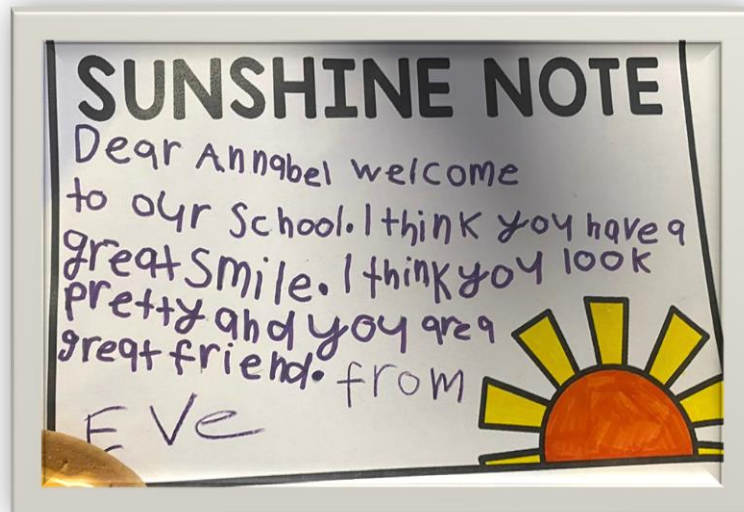 SUNSHINE NOTE
Dear Annabel welcome
to our School. I think you have a
great smile. I think you look
pretty and you are a
great friend. from
Eve